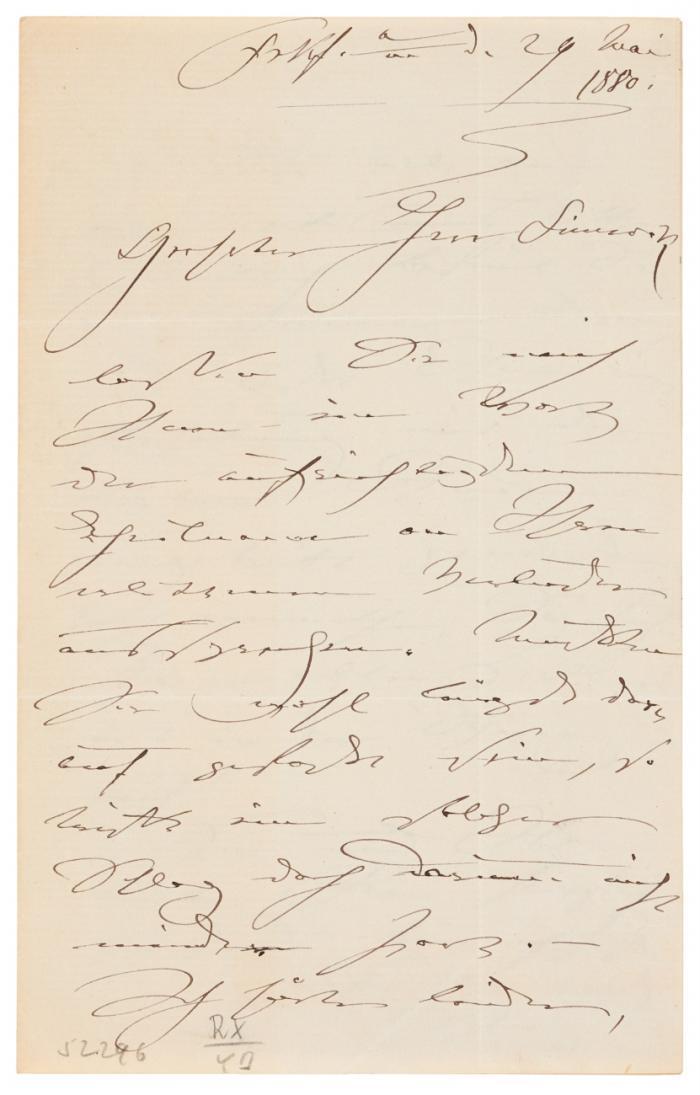 Frkf. a/m d. 29 Mai
1880.
Geehrter Herr Simrock
lassen Sie mich
Ihnen ein Wort
der aufrichtigsten
Theilnahme an Ihrem
Verluste
aussprechen. Mußten
Sie wohl längst dar-
auf gefaßt sein, so
trifft ein solcher
Schlag doch darum nicht
minder hart. —
Ich hörte leider,
52246
RX